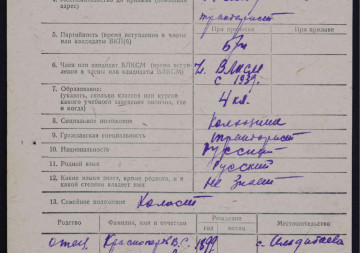 адрес)
тракторист
При призыве
5. Партийность (время вступления в члены
или кандидаты ВКП(б)
б/п
6. Член или кандидат ВЛКСМ (время вступ-
ления в члены или кандидаты ВЛКСМ)
ВЛКСМ
с 1939
7. Образование:
(указать, сколько классов или курсов
какого учебного заведения окончил, где
и когда)
4 кл.
8. Социальное положение
9. Гражданская специальность
тракторист
10. Национальность
русский
11. Родной язык
Русский
12. Какие языки знает, кроме родного, и в
какой степени владеет ими
не знает
13. Семейное положение
Холост
Родство
Фамилия, имя и отчество
Рождение
год
месяц
Местожительство
отец
В.С.
с.